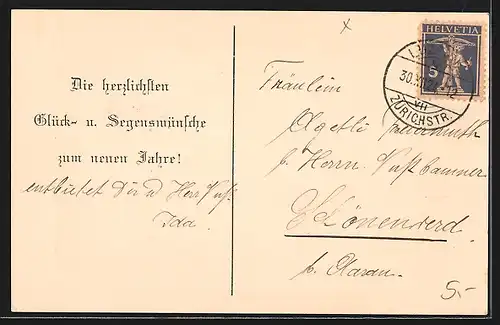 Die herzlichsten
Glück- u. Segenswünsche
zum neuen Jahre!
entbietet Dir d Herr
Ida.
HELVETIA
5
30.XII.
VII
ZÜRICHSTR.
Fräulein
Agetli
b. Herrn
Schönenwerd
b. Aarau.
5.-